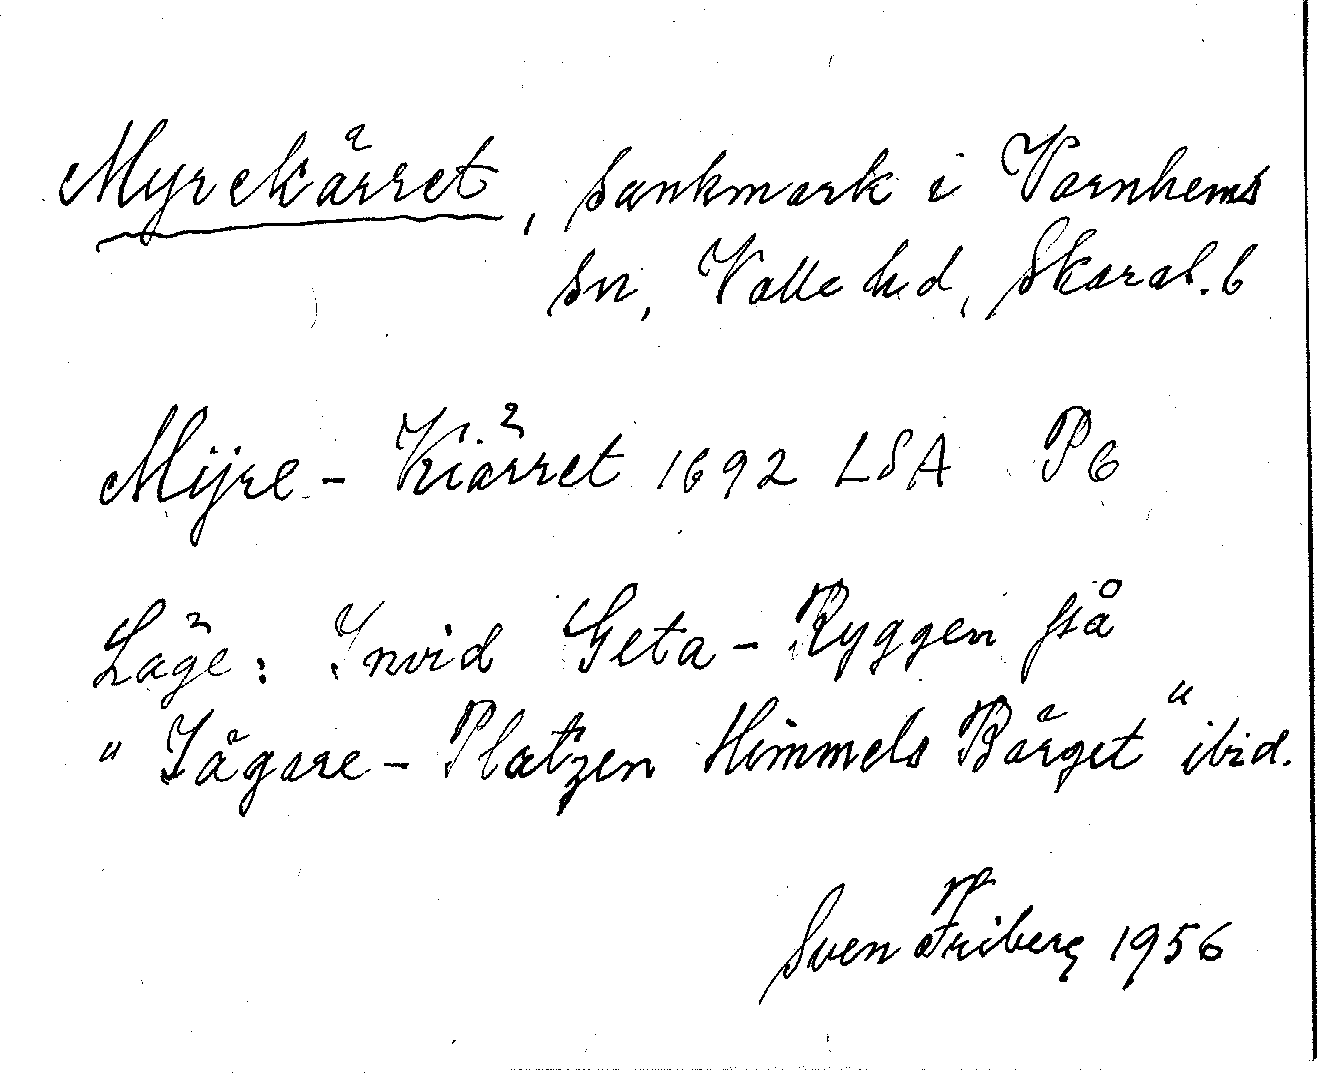 Myrekärret, sankmark i Varnhems
sn, Valle hd, Skarab. 6
Mijre - Kiärret 1692 LSA P6
Läge: Invid Geta - Ryggen på
" Jägare - Platzen Himmels Bärget " ibid.
Sven Friberg 1956